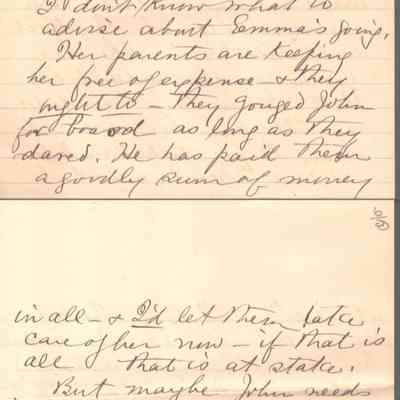 I don't know what to
advise about Emma's going.
Her parents are keeping
her free of expense - & they
ought to - They gouged John
for board as long as they
dared. He has paid them
a goodly sum of money
in all - & I'd let them take
care of her now - if that is
all that is at stake.
But maybe John needs